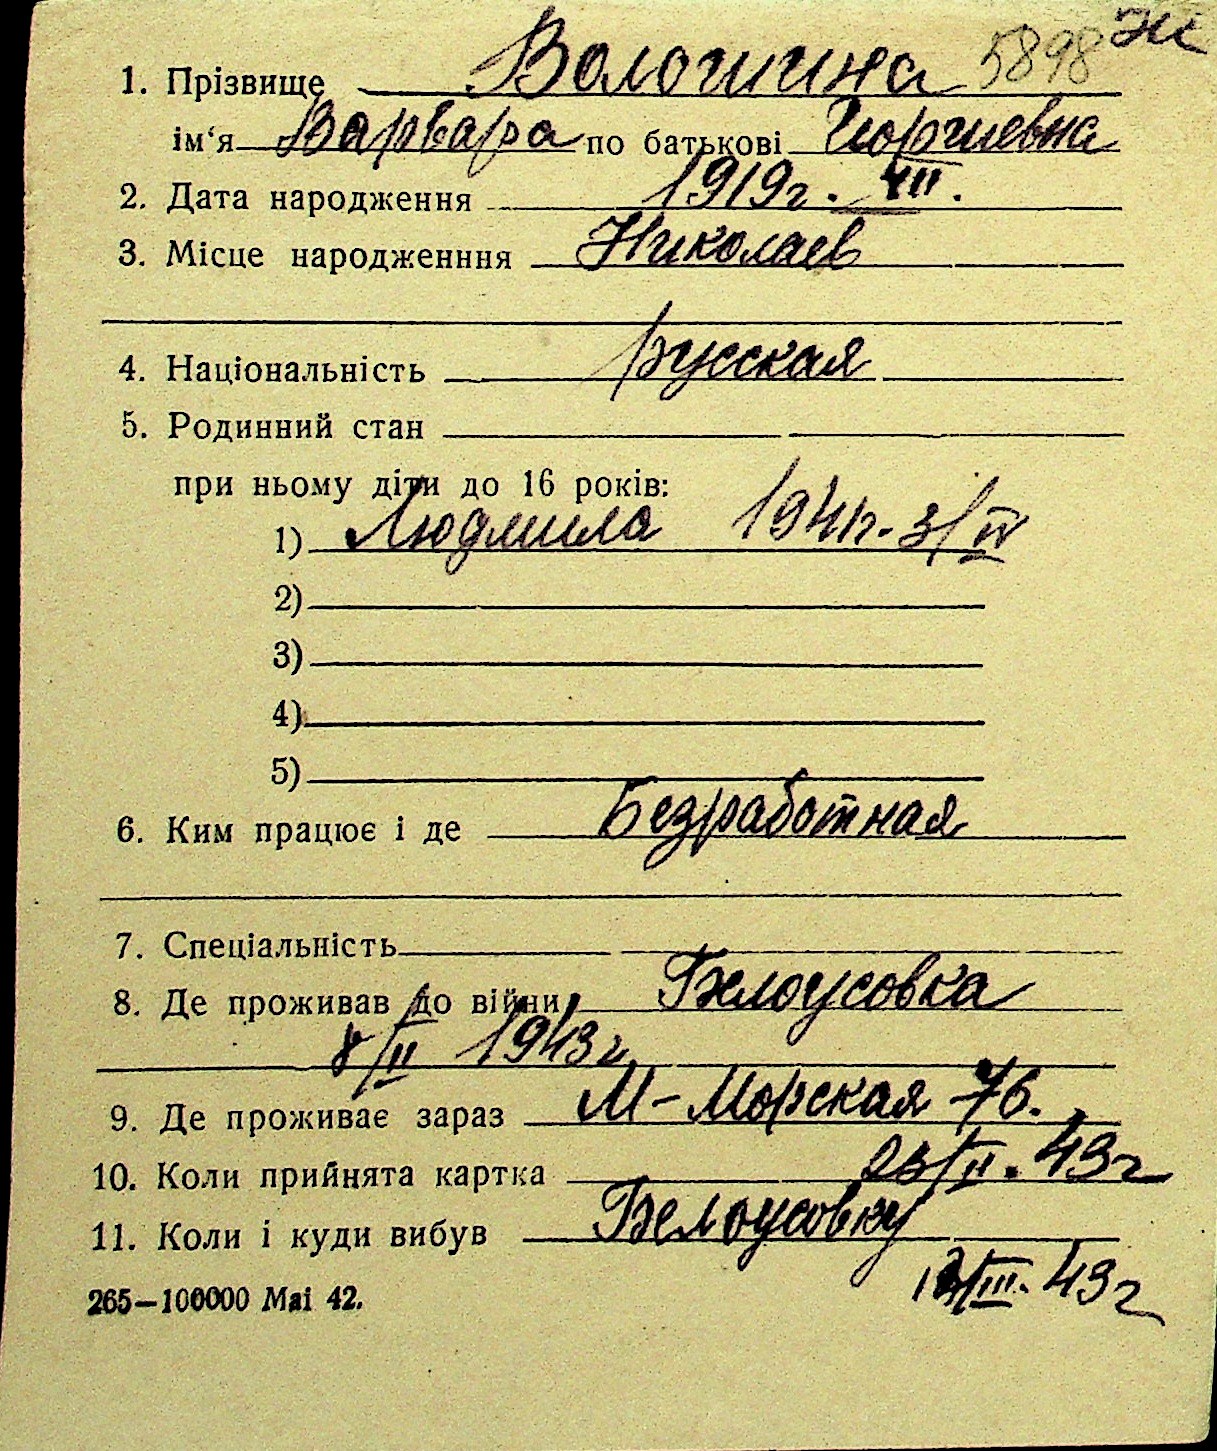 1. Прізвище Волошина 5898
ім'я Варвара по батькові Георгиевна
2. Дата народження 1919г. VII.
3. Місце народженння Николаев
4. Національність русская
5. Родинний стан
при ньому діти до 16 років:
1) Людмила 1941г. 3/IV
2)
3)
4)
5)
6. Ким працює і де Безработная
7. Спеціальність
8. Де проживав до війни Белоусовка
8/II 1943г
9. Де проживає зараз М-Морская 76.
10. Коли прийнята картка 23/II. 43г
11. Коли і куди вибув Белоусовку
/III. 43г
265—100000 Mai 42.